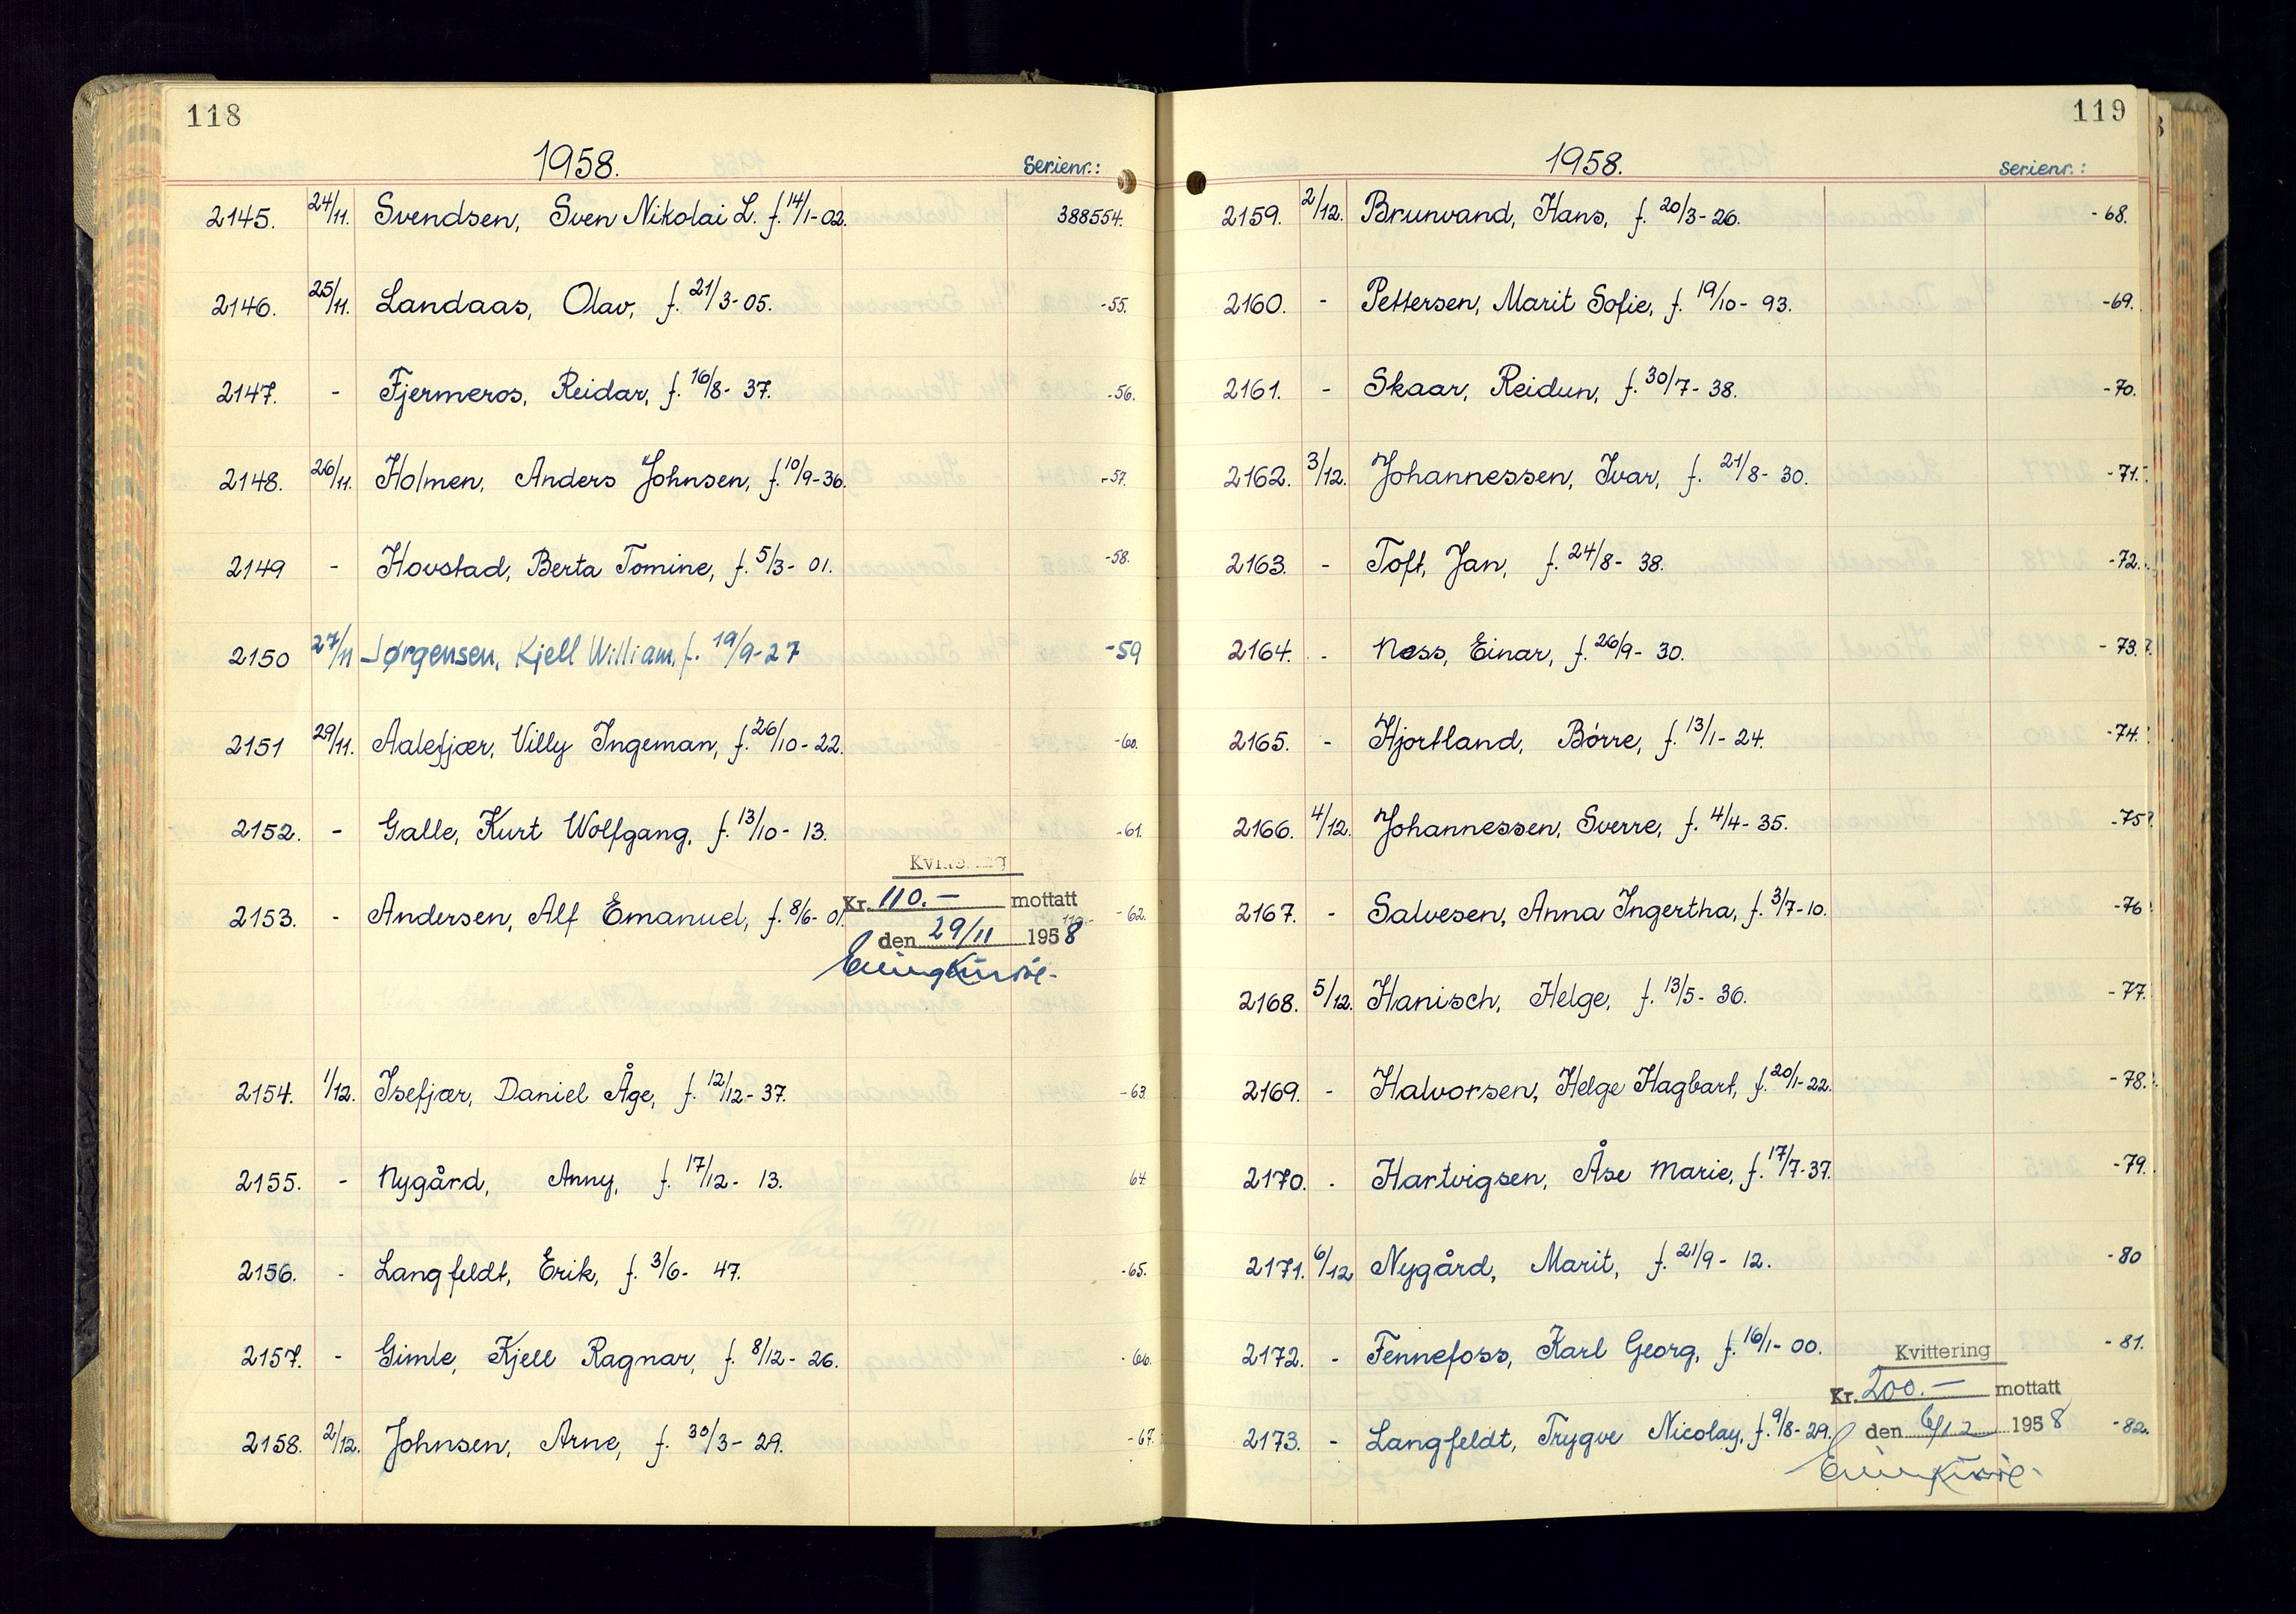 118
1958. Serienr.:
2145. 24/11. Svendsen, Sven Nikolai L. f. 14/1-02. 388554.
2146. 25/11. Landaas, Olav, f. 21/3-05. -55.
2147. - Fjermeros, Reidar, f. 16/8-37. -56.
2148. 26/11. Holmen, Anders Johnsen, f. 10/9-36. -57.
2149 - Hovstad, Berta Tomine, f. 5/3-01. -58.
2150 27/11 Jørgensen, Kjell William, f. 19/9-27 -59
2151 29/11. Aalefjær, Villy Ingeman, f. 26/10-22. -60.
2152. - Galle, Kurt Wolfgang, f. 13/10-13. -61.
Kvittering
2153. - Andersen, Alf Emanuel, f. 8/6-01. Kr. 110.- mottatt -62.
110.-
den 29/11 1958
2154. 1/12. Isefjær, Daniel Åge, f. 12/12-37. -63.
2155. - Nygård, Anny, f. 17/12-13. 64
2156. - Langfeldt, Erik, f. 3/6-47. -65.
2157. - Gimle, Kjell Ragnar, f. 8/12-26. -66.
2158. 2/12. Johnsen, Arne, f. 30/3-29. -67.
119
1958. Serienr.:
2159. 2/12. Brunvand, Hans, f. 20/3-26. -68.
2160. - Pettersen, Marit Sofie, f. 19/10-93. -69.
2161. - Skaar, Reidun, f. 30/7-38. -70.
2162. 3/12. Johannessen, Ivar, f. 21/8-30. -71.
2163. - Toft, Jan, f. 24/8-38. -72.
2164. - Ness, Einar, f. 26/9-30. -73.
2165. - Hjortland, Børre, f. 13/1-24. -74.
2166. 4/12. Johannessen, Sverre, f. 4/4-35. -75
2167. - Salvesen, Anna Ingertha, f. 3/7-10. -76
2168. 5/12. Hanisch, Helge, f. 13/5-36. -77.
2169. - Halvorsen, Helge Hagbart, f. 20/1-22. -78.
2170. - Hartvigsen, Åse Marie, f. 17/7-37. -79.
2171. 6/12 Nygård, Marit, f. 21/9-12. -80
2172. - Fennefoss, Karl Georg, f. 16/1-00. -81.
Kvittering
Kr. 200.- mottatt
2173. - Langfeldt, Trygve Nicolay, f. 9/8-29. den 6/12 1958 -82.